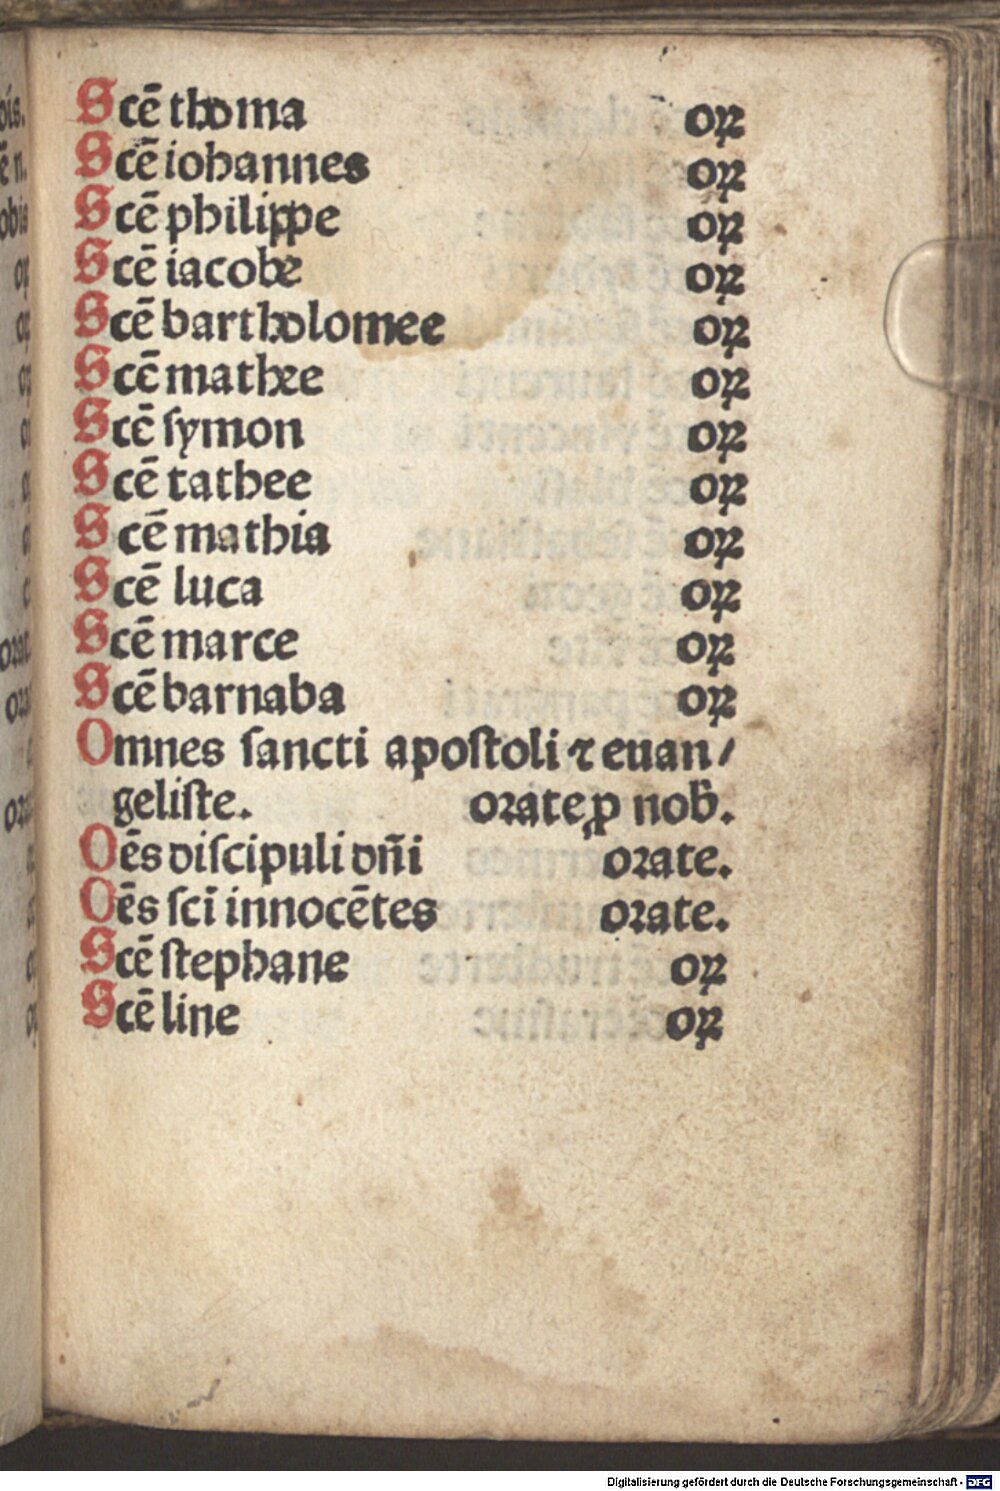 Scē thoma oꝝ
Scē iohannes oꝝ
Scē philippe oꝝ
Scē iacobe oꝝ
Scē bartholomee oꝝ
Scē mathee oꝝ
Scē ſymon oꝝ
Scē tathee oꝝ
Scē mathia oꝝ
Scē luca oꝝ
Scē marce oꝝ
Scē barnaba oꝝ
Omnes ſancti apoſtoli ⁊ euan/
geliſte. orate ꝓ nob̄.
Oēs diſcipuli dn̄i orate.
Oēs ſci innocētes orate.
Scē ſtephane oꝝ
Scē line oꝝ
Digitalisierung gefördert durch die Deutsche Forschungsgemeinschaft - DFG